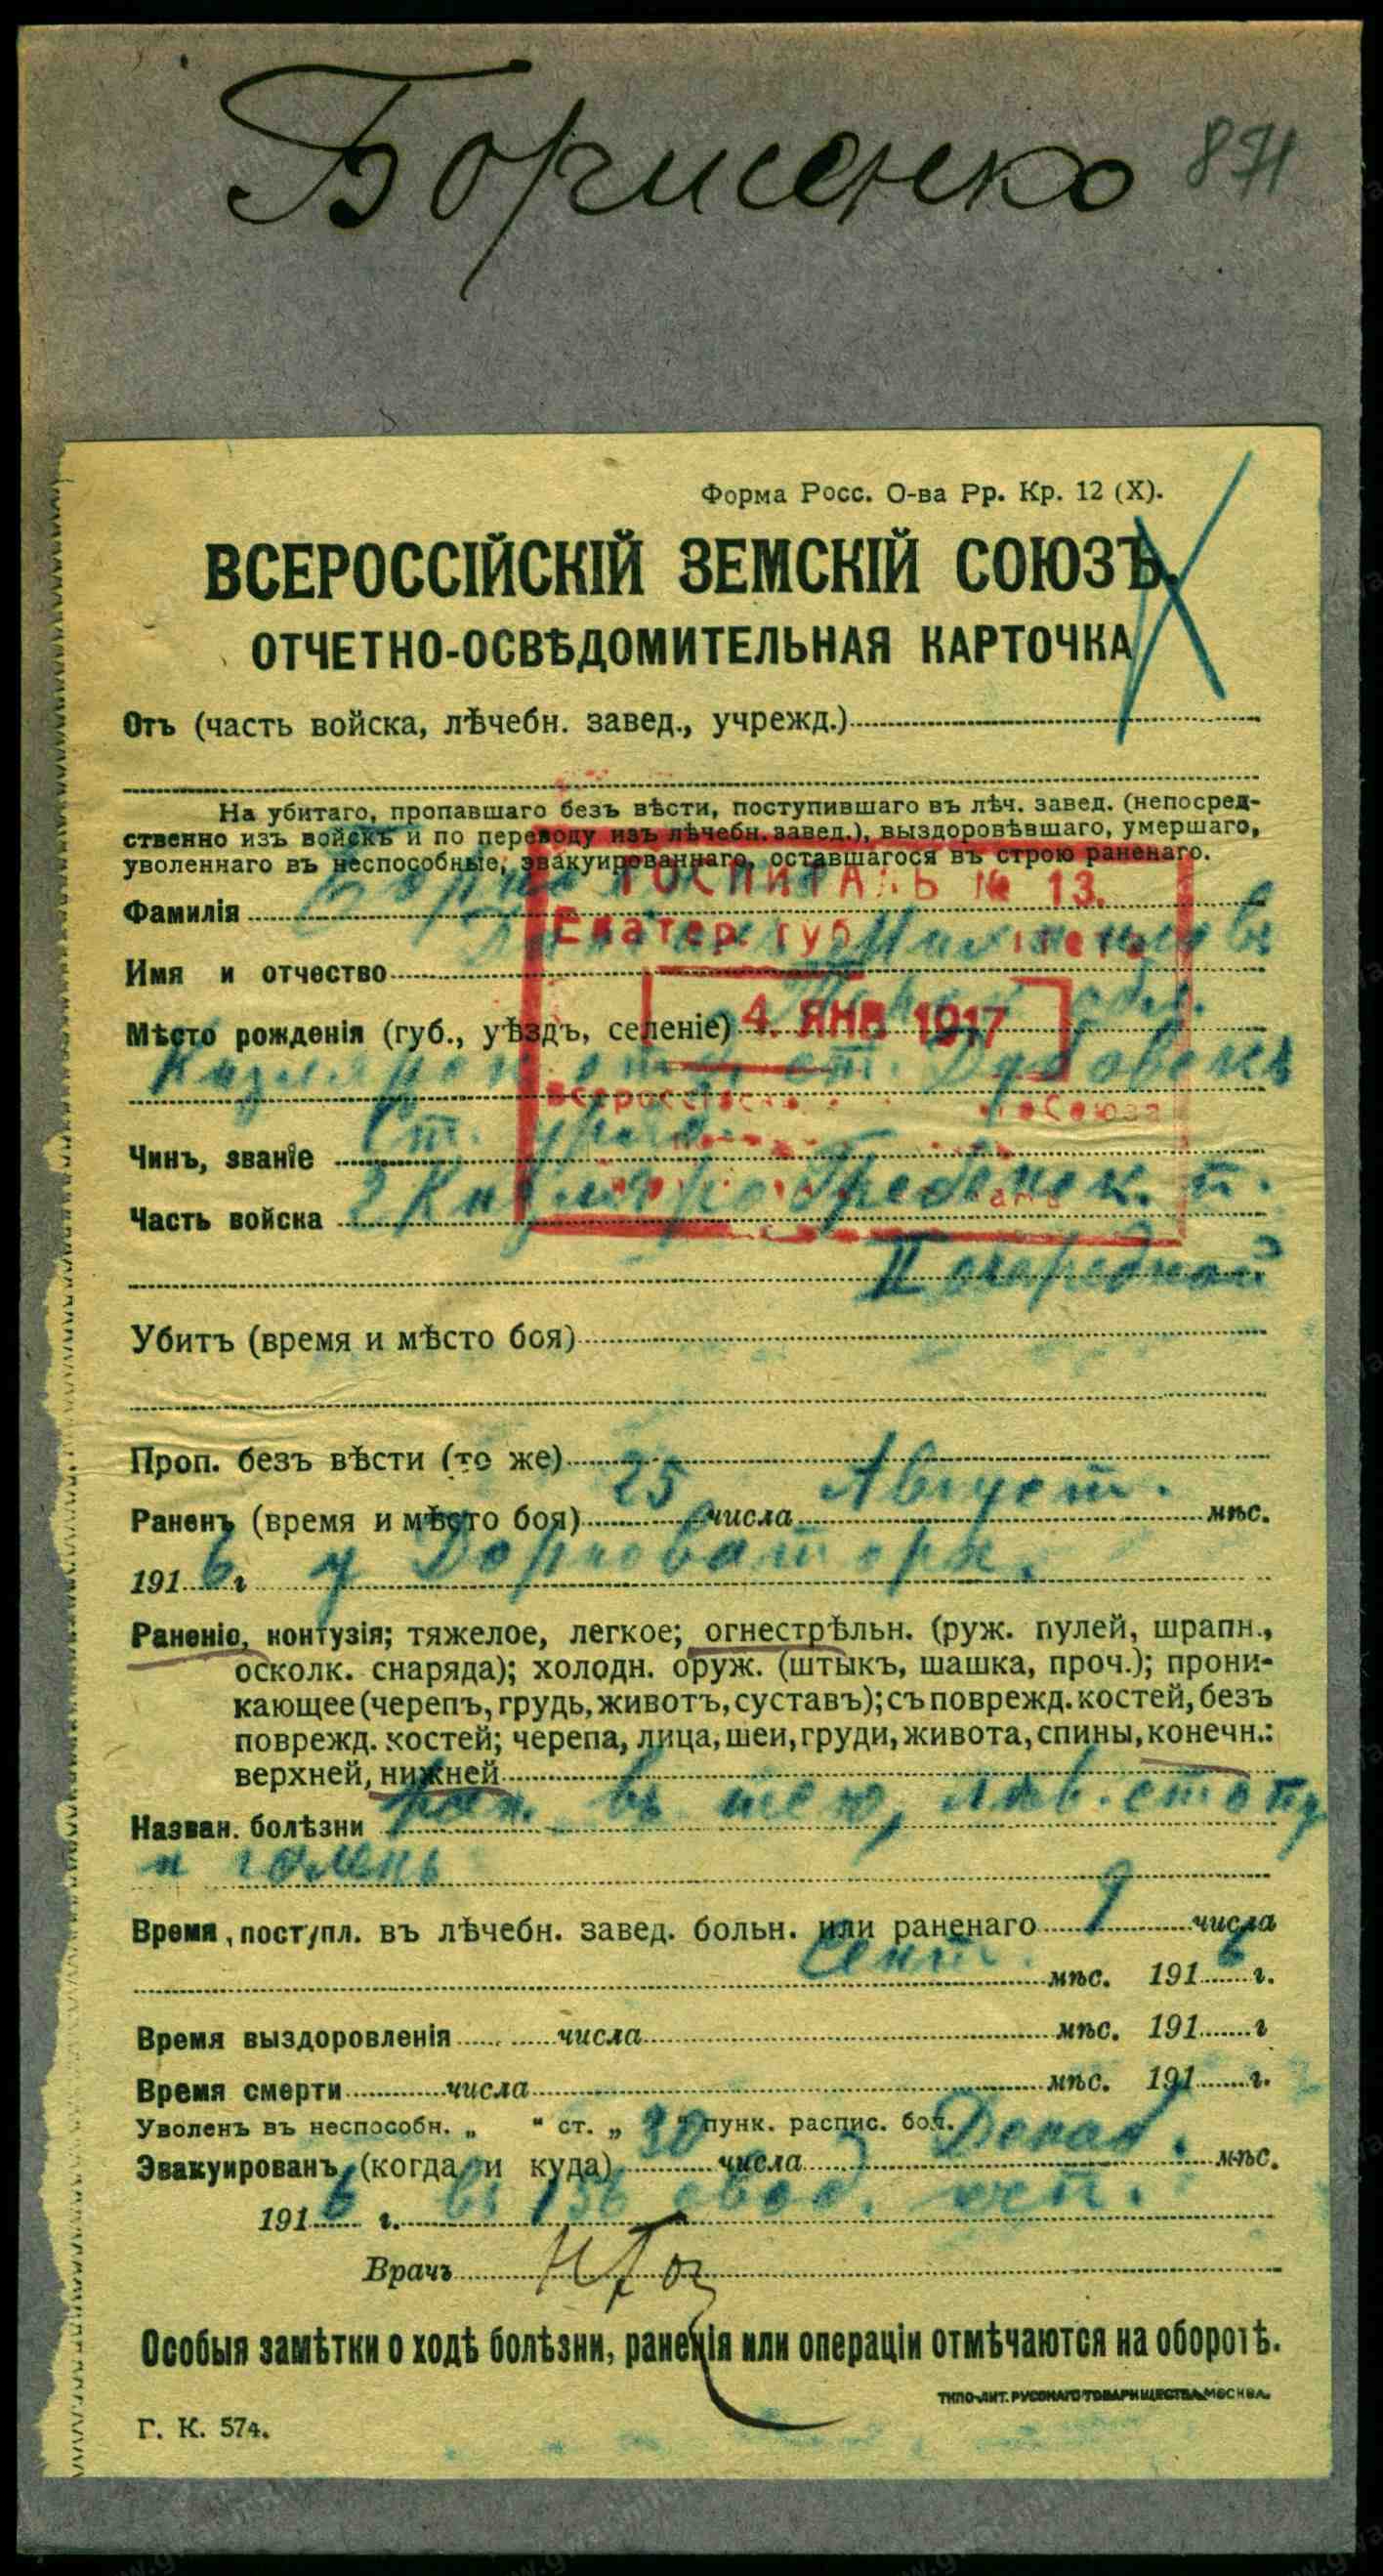 Борисенко 871
Форма Росс. О-ва Рр. Кр. 12 (X).
ВСЕРОССІЙСКІЙ ЗЕМСКІЙ СОЮЗЪ.
ОТЧЕТНО-ОСВѢДОМИТЕЛЬНАЯ КАРТОЧКА
Отъ (часть войска, лѣчебн. завед., учрежд.)
На убитаго, пропавшаго безъ вѣсти, поступившаго въ лѣч. завед. (непосред-
ственно изъ войскъ и по переводу изъ лѣчебн. завед.), выздоровѣвшаго, умершаго,
уволеннаго въ неспособные, эвакуированнаго, оставшагося въ строю раненаго.
ГОСПИТАЛЬ № 13.
Фамилія
Екатер. губ.
Имя и отчество
Мѣсто рожденія (губ., уѣздъ, селеніе) Терск. обл.
4. ЯНВ 1917
Кизлярск. отд. ст. Дубовск.
Союза
Чинъ, званіе Ст. уряд.
Часть войска 2 Кизляро Гребенск. п.
II очередной
Убитъ (время и мѣсто боя)
Проп. безъ вѣсти (то же)
Раненъ (время и мѣсто боя) 25 числа Август. мѣс.
1916 г. у Дорноватора.
Раненіе, контузія; тяжелое, легкое; огнестрѣльн. (руж. пулей, шрапн.,
осколк. снаряда); холодн. оруж. (штыкъ, шашка, проч.); прони-
кающее (черепъ, грудь, животъ, суставъ); съ поврежд. костей, безъ
поврежд. костей; черепа, лица, шеи, груди, живота, спины, конечн.:
верхней, нижней
Назван. болѣзни ран. въ шею, лѣв. стопу
и голень
Время пост/пл. въ лѣчебн. завед. больн. или раненаго 9 числа
Сент. мѣс. 1916 г.
Время выздоровленія числа мѣс. 191 г
Время смерти числа мѣс. 191 г.
Уволенъ въ неспособн. „ “ ст. „ “ пунк. распис. бол.
Эвакуированъ (когда и куда) 30 числа Декаб. мѣс.
1916 г. въ 136 свод. госп.
Врачъ
Особыя замѣтки о ходѣ болѣзни, раненія или операціи отмѣчаются на оборотѣ.
ТИПО-ЛИТ. РУССКАГО ТОВАРИЩЕСТВА, МОСКВА.
Г. К. 574.